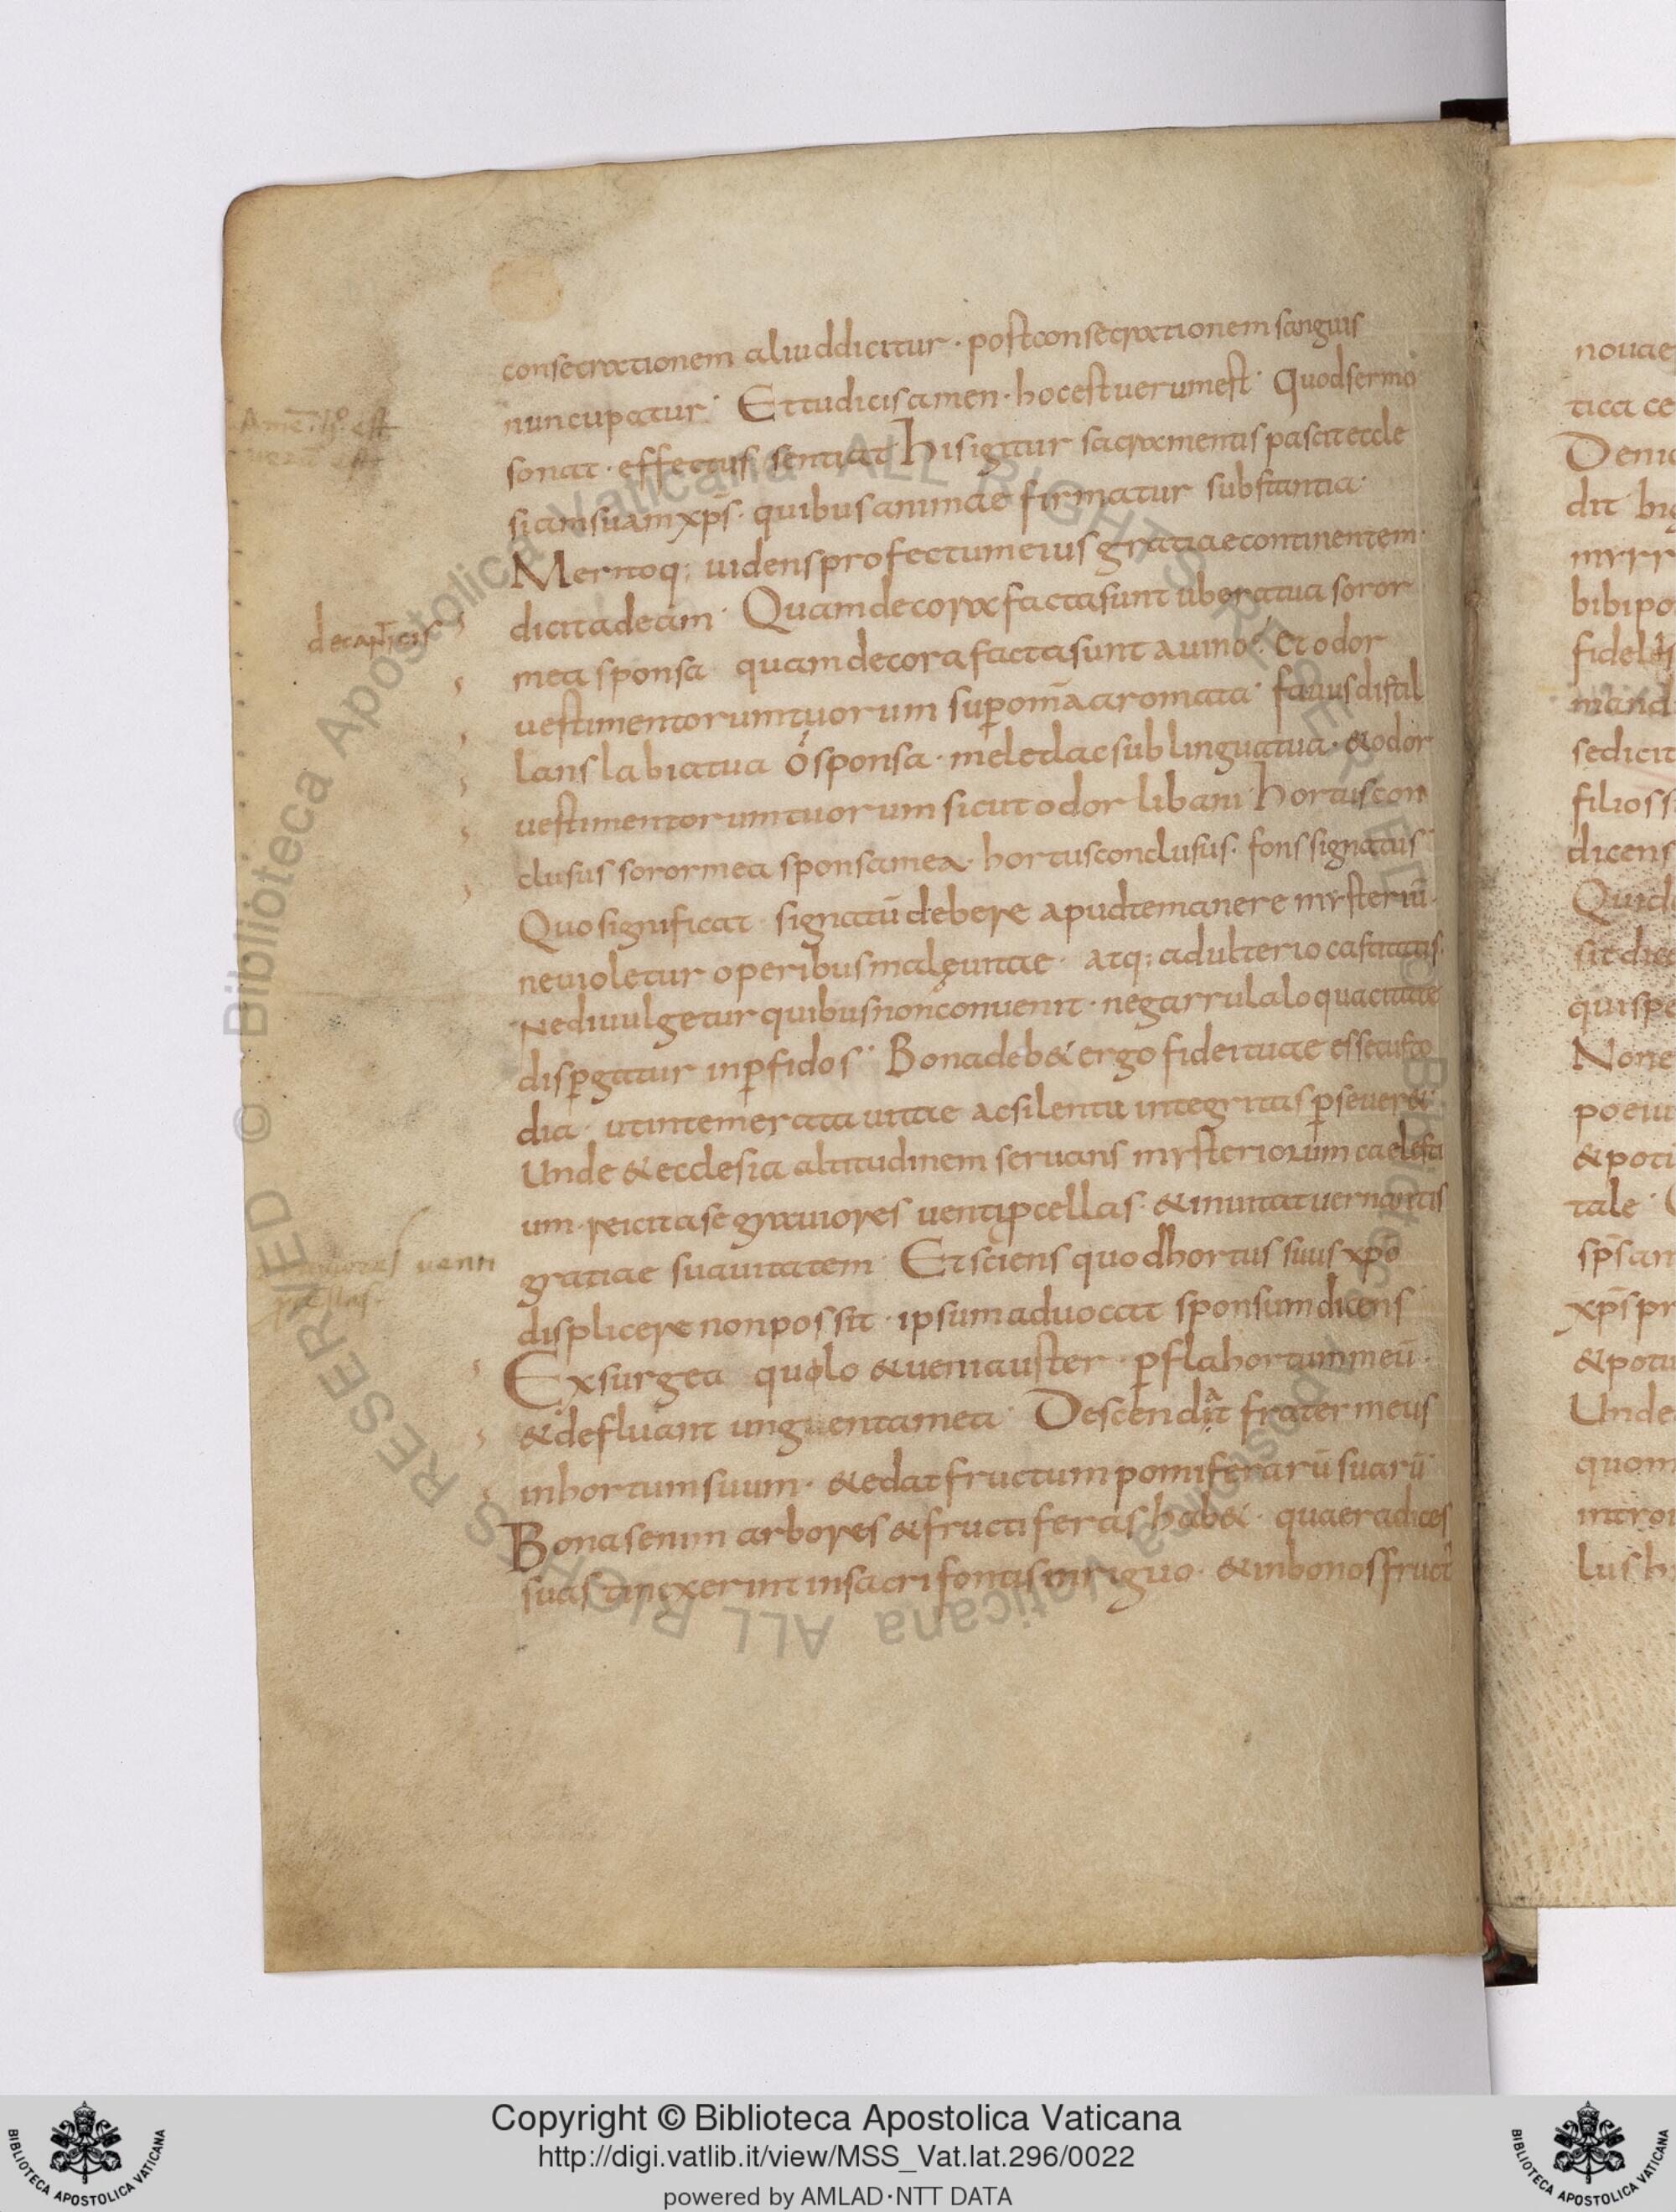 consecrationem aliud dicitur · post consecrationem sanguis
nuncupatur · Et tu dicis amen · hoc est uerum est · Quod sermo
sonat · effectus sentiat His igitur sacramentis pascit eccle
siam suam xp̄s · quibus animae firmatur substantia ·
Meritoq; uidens profectum eius gratiae continentem ·
dicit ad eam · Quam decora facta sunt ubera tua soror
mea sponsa quam decora facta sunt a uino · Et odor
uestimentorum tuorum sup̄ om̄a aromata · fauus distil
lans labia tua ó sponsa · mel et lac sub lingua tua · & odor
uestimentorum tuorum sicut odor libani · hortus con
clusus soror mea sponsa mea · hortus conclusus · fons signatus ·
Quo significat · signatū debere apud te manere mysteriū ·
ne uioletur operibus malę uitae · atq; adulterio castitatis ·
Ne diuulgetur quibus non conuenit · ne garrula loquacitate
disp̄gatur in p̄fidos · Bona deb& ergo fidei tuae esse custo
dia · ut intemerata uitae ac silentii integritas p̄seuer& ·
Unde & ecclesia altitudinem seruans mysteriorum caelesti
um · reicit a se grauiores uenti p̄cellas · & inuitat uernantis
gratiae suauitatem · Et sciens quod hortus suus xp̄o
displicere non possit · ipsum aduocat sponsum dicens
Exsurge aquolo & ueni auster · p̄fla hortum meū ·
& defluant unguenta mea · Descendat frater meus
in hortum suum · & edat fructum pomiferarū suarū ·
Bonas enim arbores & fructiferas hab& · quae radices
suas tinxerint in sacri fontis inriguo · & in bonos fruct
de canticis
uenti
nouae
tica ce
Denıq
dit hi
myrr
bibi po
fidel
mand
sedicit
filios s
dicens
Quid
sit die
quispe
None
poeiu
& poti
tale ·
sp̄san
xp̄s pr
& potu
Unde
quom
introi
lus h
© Biblioteca Apostolica Vaticana ALL RIGHTS RESERVED
© Biblioteca Apostolica Vaticana ALL RIGHTS RESERVED
BIBLIOTECA APOSTOLICA VATICANA
Copyright © Biblioteca Apostolica Vaticana
http://digi.vatlib.it/view/MSS_Vat.lat.296/0022
powered by AMLAD·NTT DATA
BIBLIOTECA APOSTOLICA VATICANA